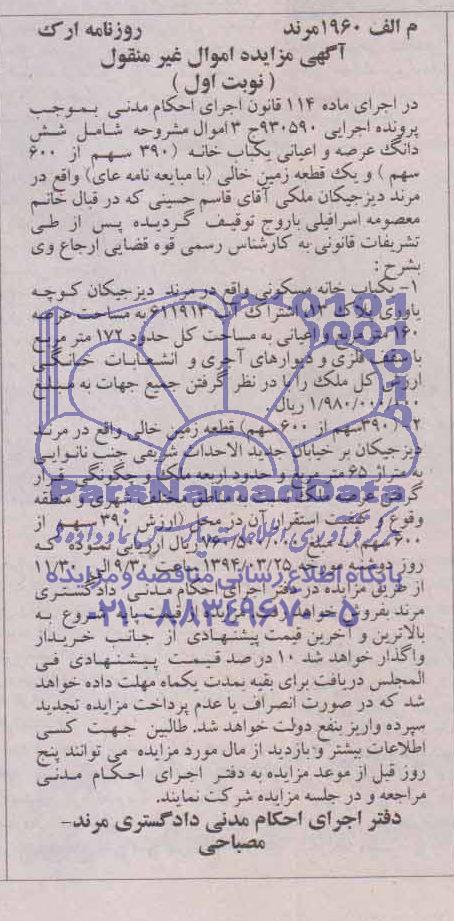 م الف ۱۹۶۰مرند روزنامه ارک
آگهی مزایده اموال غیر منقول
( نوبت اول )
در اجرای ماده ۱۱۴ قانون اجرای احکام مدنی بموجب
پرونده اجرایی ۹۳۰۵۹۰ج ۳ اموال مشروحه شامل شش
دانگ عرصه و اعیانی یکباب خانه (۳۹۰ سهم از ۶۰۰
سهم ) و یک قطعه زمین خالی (با مبایعه نامه عای) واقع در
مرند دیزجیکان ملکی آقای قاسم حسینی که در قبال خانم
معصومه اسرافیلی باروج توقیف گردیده پس از طی
تشریفات قانونی به کارشناس رسمی قوه قضایی ارجاع وی
بشرح :
۱- یکباب خانه مسکونی واقع در مرند دیزجیکان کوچه
یاوری پلاک ۱۳، اشتراک آب ۶۱۱۹۱۳ به مساحت عرصه
۱۶۰ متر مربع و اعیانی به مساحت کل حدود ۱۷۲ متر مربع
با سقف فلزی و دیوارهای آجری و انشعابات خانگی
ارزش کل ملک را با در نظر گرفتن جمیع جهات به مبلغ
۱/۹۸۰/۰۰۰/۰۰۰ ریال.
۲- ۳۹۰سهم از ۶۰۰ سهم) قطعه زمین خالی واقع در مرند
دیزجیکان بر خیابان جدید الاحداث شریفی جنب نانوایی
به متراژ ۶۵ متر مربع و حدود اربعه ملک و چگونگی قرار
گرفتن عرصه ملک نسبت به مناطق مختلف شهری و منطقه
وقوع و کیفیت استقرار آن در محل (ارزش ۳۹۰ سهم از
۶۰۰ سهم) به مبلغ ریال ارزیابی نموده که
روز دوشنبه مورخه ۱۳۹۴/۰۳/۲۵ ساعت ۹/۳۰ الی ۱۱/۳۰
از طریق مزایده در دفتر اجرای احکام مدنی دادگستری
مرند بفروش خواهد رسید مزایده از قیمت پایه شروع به
بالاترین و آخرین قیمت پیشنهادی از جانب خریدار
واگذار خواهد شد ۱۰ درصد قیمت پیشنهادی فی
المجلس دریافت برای بقیه بمدت یکماه مهلت داده خواهد
شد که در صورت انصراف یا عدم پرداخت مزایده تجدید
سپرده واریز بنفع دولت خواهد شد. طالبین جهت کسی
اطلاعات بیشتر و بازدید از مال مورد مزایده می توانند پنج
روز قبل از موعد مزایده به دفتر اجرای احکام مدنی
مراجعه و در جلسه مزایده شرکت نمایند.
دفتر اجرای احکام مدنی دادگستری مرند-
مصباحی
ParsNamadData
مرکز فرآوری اطلاعات پارس نماد داده ها
پایگاه اطلاع رسانی مناقصه و مزایده
۰۲۱-۸۸۳۴۹۶۷۰-۵